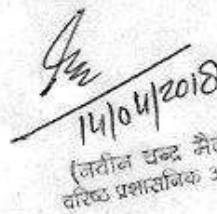 14/04/2018
(नवीन चन्द्र
वरिष्ठ प्रशासनिक